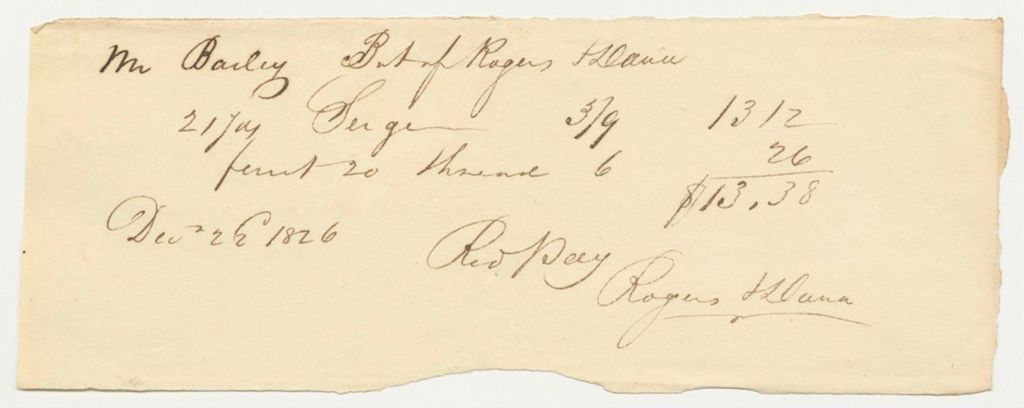 Mr Bailey Bot of Rogers & Dana
21 yds Serge 3/9 13 12
ferret 20 thread 6 26
$13.38
Decr 22 1826
Recd Pay
Rogers & Dana